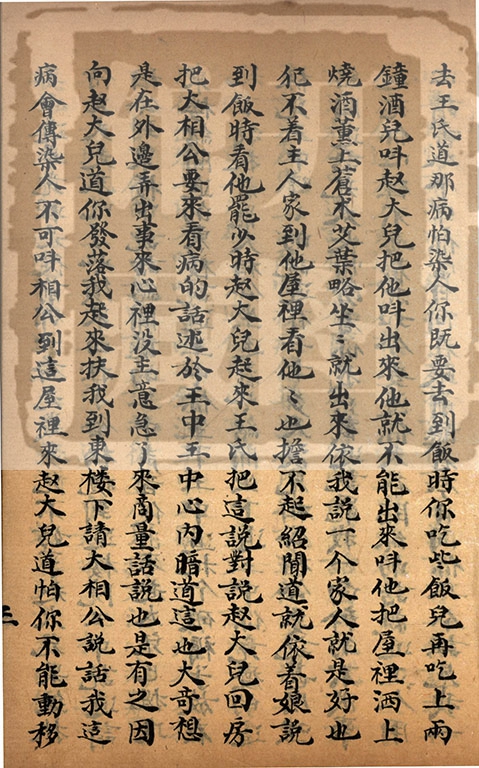 去王氏道那病怕染人你既要去到飯時你吃些飯兒再吃上兩
鐘酒兒叫赵大兒把他叫出來他就不能出來叫他把屋裡洒上
燒酒薰上蒼术艾葉略坐〻就出來依我説一个家人就是好也
犯不着主人家到他屋裡看他〻也擔不起紹聞道就依着娘説
到飯時看他罷少時赵大兒起來王氏把這説對説赵大兒回房
把大相公要來看病的話述於王中王中心内暗道這也大奇想
是在外邊弄出事來心裡没主意急了來商量話説也是有之因
向赵大兒道你發落我起來扶我到東楼下請大相公説話我這
病會傳染人不可叫相公到這屋裡來赵大兒道怕你不能動移